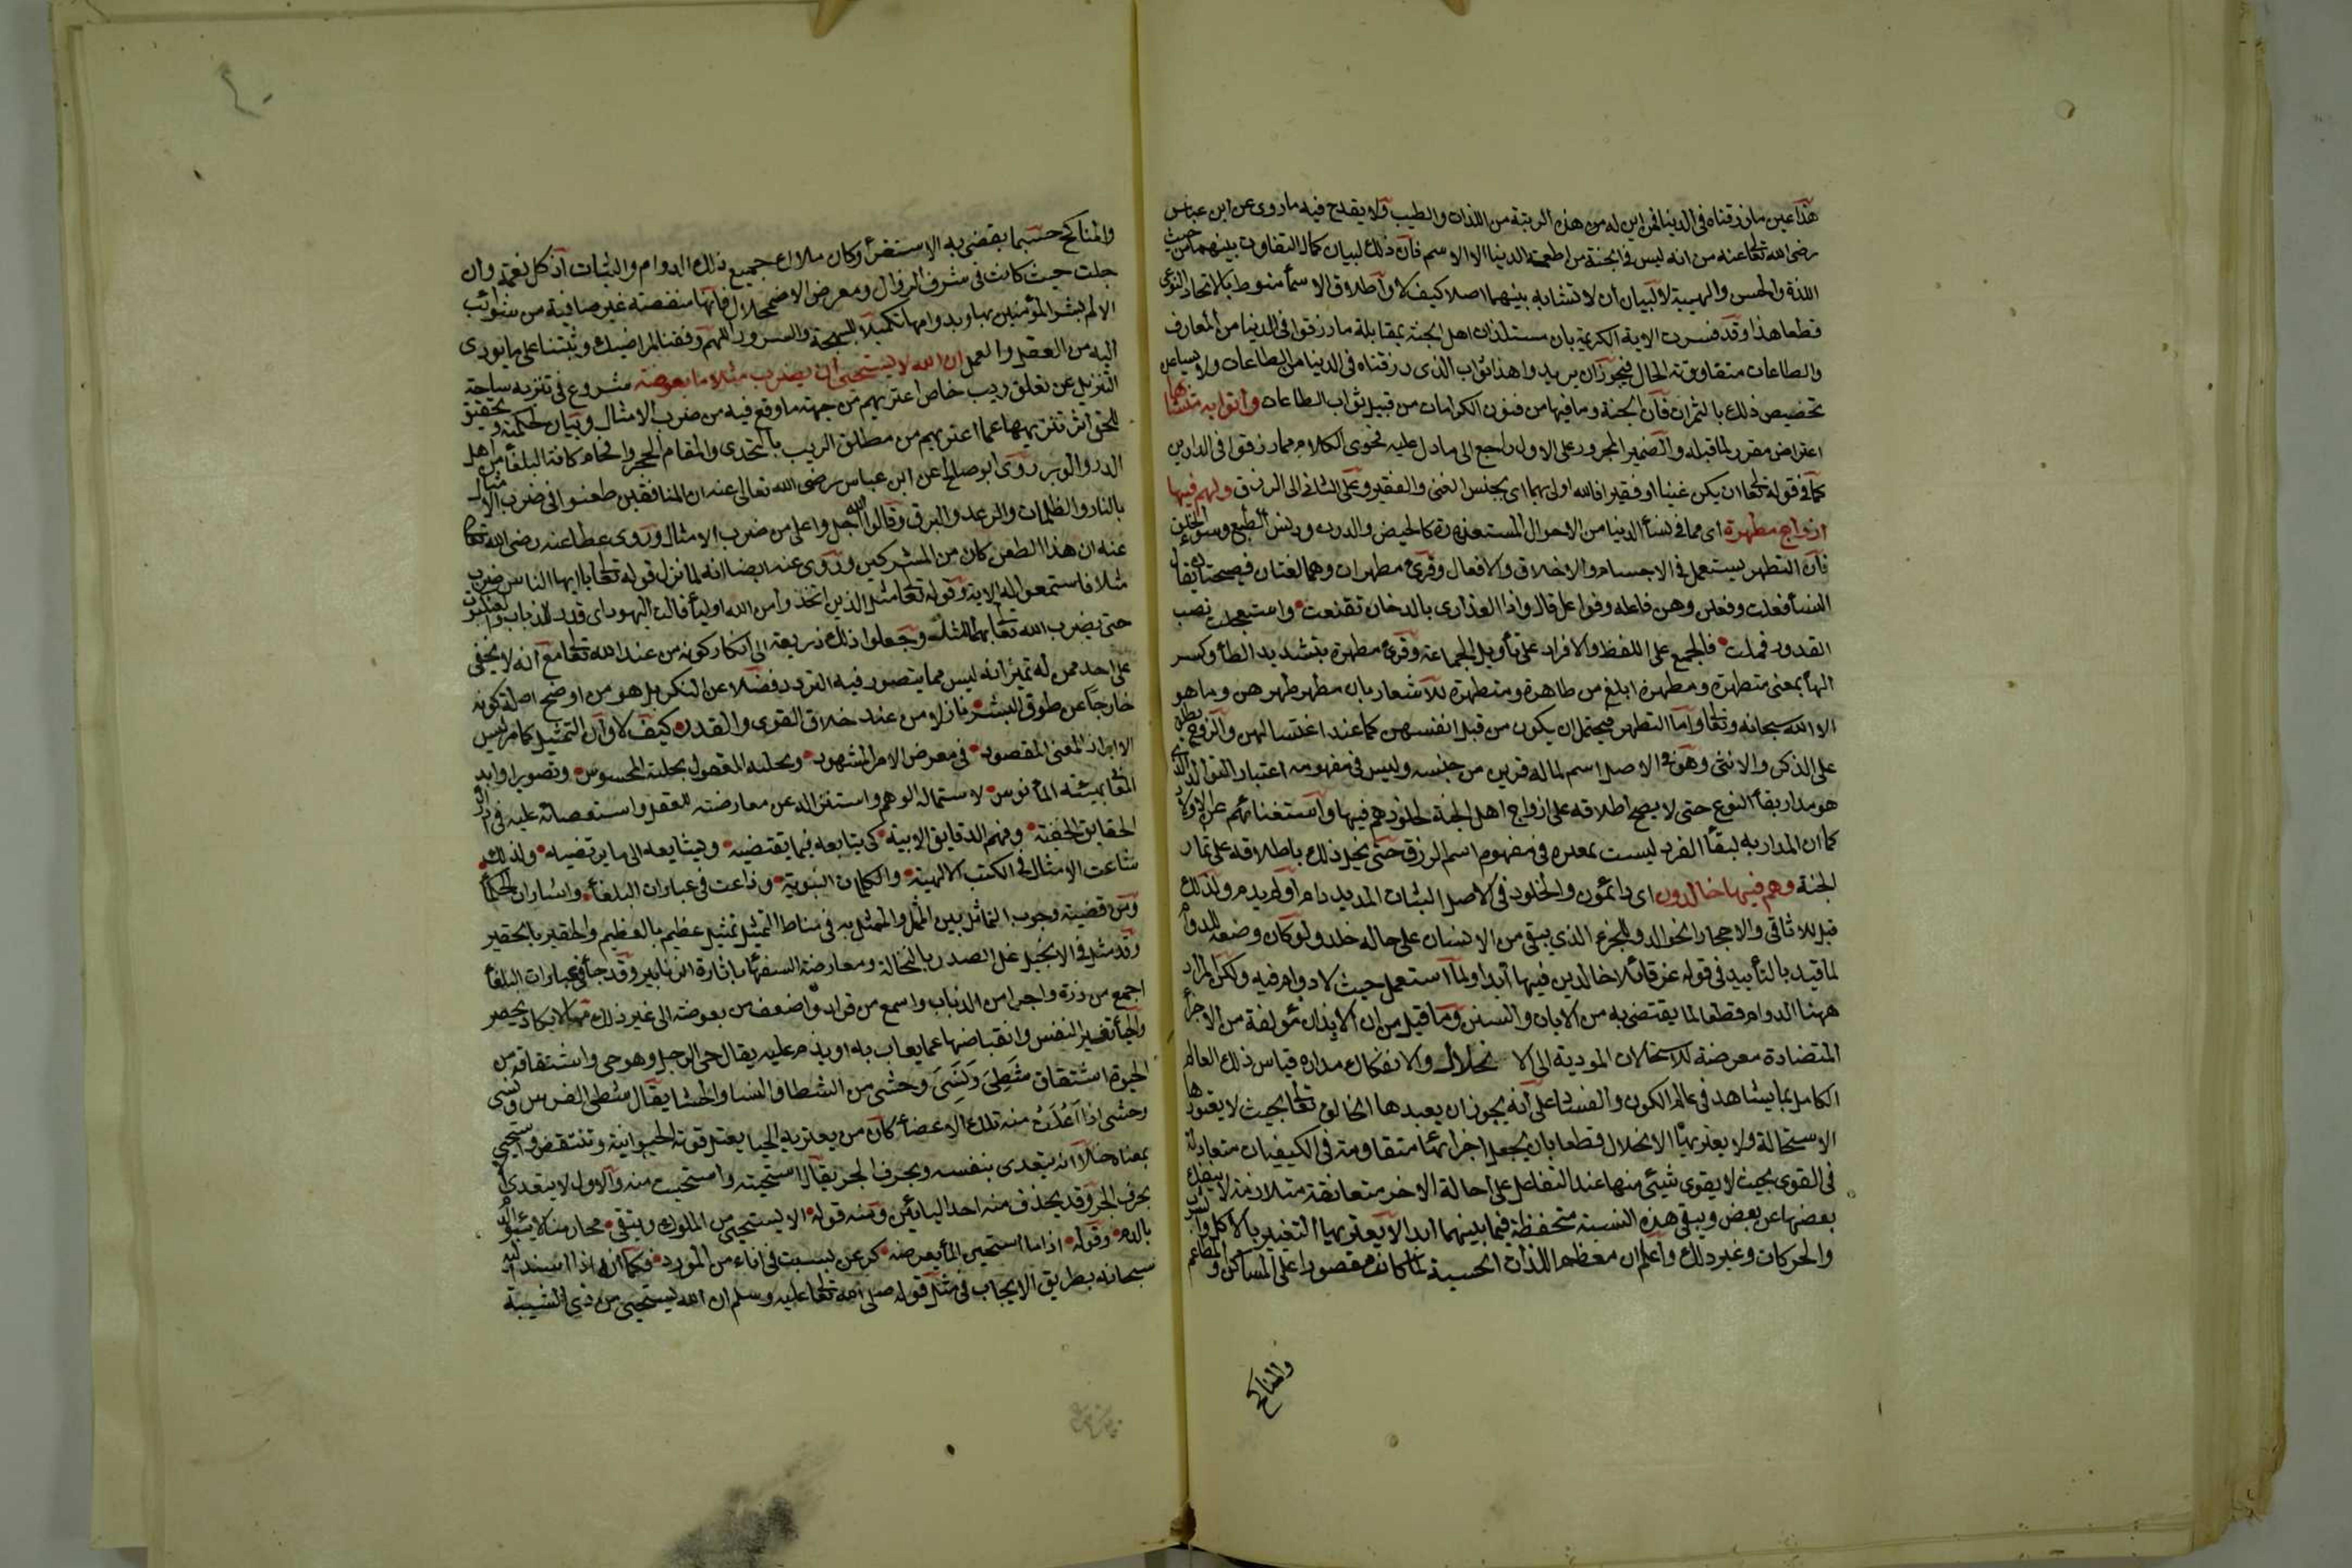 هذا عين ما رزقناه في الدنيا فمن اين له من هذه الرتبة من اللذات والطيب ولا يقدح فيه ما روى عن ابن عباس
رضى الله تعا عنه من انه ليس في الجنة من اطعمة الدنيا الا الاسم فان ذلك لبيان كمال التفاوت بينهما من حيث
اللذة والحسن والهيئة لا لبيان ان لا تشابه بينهما اصلا كيف لا واطلاق الاسمأ منوط بالاتحاد النوعى
قطعا هذا وقد فسرت الاية الكريمة بان مستلذات اهل الجنة بمقابلة ما رزقوا في الدنيا من المعارف
والطاعات متفاوتة الحال فيجوز ان يريدوا هذا ثواب الذى رزقناه في الدنيا من الطاعات ولا يساعد
تخصيص ذلك بالثمرات فان الجنة وما فيها من فنون الكرامات من قبيل ثواب الطاعات واتوا به متشابها
اعتراض مقرر لما قبله والضمير المجرور على الاول راجع الى ما دل عليه فحوى الكلام مما رزقوا في الدارين
كما في قوله تعا ان يكن غنيا او فقيرا فالله اولى بهما اى بجنس الغنى والفقير وعلى الثانى الى الرزق ولهم فيها
ازواج مطهرة اى مما في نسأ الدنيا من الاحوال المستقذرة كالحيض والدرن ودنس الطبع وسوء الخلق
فان التطهر يستعمل في الاجسام والاخلاق والافعال وقرئ مطهرات وهما لغتان فصيحتان يقال
النسأ فعلت وفعلن وهن فاعله وفواعل قال واذا العذارى بالدخان تقنعت واستعجلت نصب
القدور فملت فالجمع على اللفظ والافراد على تأويل الجماعة وقرئ مطهرة بتشديد الطأ وكسر
الهأ بمعنى متطهرة ومطهرة ابلغ من طاهرة ومتطهرة للاشعار بان مطهرا طهرهن وما هو
الا الله سبحانه وتعا واما التطهر فيحتمل ان يكون من قبل انفسهن كما عند اغتسالهن والزوج يطلق
على الذكر والانثى وهو في الاصل اسم لما له قرين من جنسه وليس في مفهومه اعتبار التوالد الذى
هو مدار بقأ النوع حتى لا يصح اطلاقه على ازواج اهل الجنة لخلودهم فيها واستغنائهم عن الاولاد
كما ان المدارية لبقأ الفرد ليست بمعتبرة في مفهوم اسم الرزق حتى يخل ذلك باطلاقه على ثمار
الجنة وهم فيها خالدون اى دائمون والخلود في الاصل الثبات المديد دام او لم يدم ولذلك
قيل للاثافى والاحجار الخوالد وللجزء الذي يبقى من الانسان على حاله خلد ولو كان وضعه للدوام
لما قيد بالتأبيد في قوله عز قائلا خالدين فيها ابدا ولما استعمل حيث لا دوام فيه ولكن المراد
ههنا الدوام قطعا لما يقتضى به من الايات والسنن وما قيل من ان الابدان مؤلفة من الاجزأ
المتضادة معرضة للاستحالات المودية الى الانحلال والانفكاك مداره قياس ذلك العالم
الكامل بما يشاهد في عالم الكون والفساد على انه يجوز ان يعيدها الخالق تعا بحيث لا يعتورها
الاستحالة ولا يعتريها الانحلال قطعا بان يجعل اجزائها متقاومة في الكيفيات متعادلة
في القوى بحيث لا يقوى شيئ منها عند التفاعل على احالة الاخر متعانقة متلازمة لا ينفك
بعضها عن بعض ويبقى هذه النسبة متحفظة فيما بينهما ابدا لا يعتريها التغير بالاكل والشرب
والحركات وغير ذلك واعلم ان معظم اللذات الحسية لما كانت مقصورا على المساكن والمطاعم
والمناكح
والمناكح حسبما يقضى به الاستقرأ وكان ملاك جميع ذلك الدوام والثبات اذ كل نعمة وان
جلت حيث كانت في شرف الزوال ومعرض الاضمحلال فانها منغصة غير صافية من شوائب
الالم بشر المؤمنين بها وبدوامها تكميلا للبهجة والسرور اللهم وفقنا لمراضيك وثبتنا على ما يودى
اليه من العقد والعمل ان الله لا يستحيى ان يضرب مثلا ما بعوضة شروع في تنزيه ساحة
التنزيل عن تعلق ريب خاص اعتريهم من جهة ما وقع فيه من ضرب الامثال وبيان لحكمته وتحقيق
للحق اثر تنزيهها عما اعتريهم من مطلق الريب بالتحدى والقام الحجر وافحام كافة البلغأ من اهل
المدر والوبر روى ابو صالح عن ابن عباس رضى الله تعالى عنه ان المنافقين طعنوا في ضرب الامثال
بالنار والظلمات والرعد والبرق وقالوا الله اجل واعلى من ضرب الامثال وروى عطا عنه رضى الله تعا
عنه ان هذا الطعن كان من المشركين وروى عنه ايضا انه لما نزل قوله تعا يا ايها الناس ضرب
مثلا فاستمعوا له الاية وقوله تعا مثل الذين اتخذوا من الله اوليأ قالت اليهود اى قدر للذباب والعنكبوت
حتى يضرب الله تعا بهما المثل وجعلوا ذلك ذريعة الى انكار كونه من عند الله تعا مع انه لا يخفى
على احد ممن له تميز انه ليس مما يتصور فيه التردد فضلا عن النكر بل هو من اوضح ادلة كونه
خارجا عن طوق البشر نازلا من عند خلاق القوى والقدر كيف لا وان التمثيل كما مر ليس
الا ابراز المعنى المقصود في معرض الامر المشهود وتحلية المعقول بحلية المحسوس وتصوير اوابد
المعانى بهيئة المأنوس لاستمالة الوهم واستنزاله عن معارضته للعقل واستعصائه عليه في ادراك
الحقايق الخفية وفهم الدقايق الابية كى يتابعه فيما يقتضيه ويشايعه الى ما يرتضيه ولذلك
شاعت الامثال في الكتب الالهية والكلمات النبوية وذاعت في عبارات البلغأ واشارات الحكمأ
ومن قضية وجوب التماثل بين الممثل والممثل به في مناط التمثيل تمثيل عظيم بالعظيم والحقير بالحقير
وقد مثل في الانجيل غل الصدر بالنخالة ومعارضة السفهأ باثارة الزنابير وقد جأ في عبارات البلغأ
اجمع من ذرة واجرا من الذباب واسمع من قراد واضعف من بعوضة الى غير ذلك مما لا يكاد يحصر
والحيأ تغير النفس وانقباضها عما يعاب به او يذم عليه يقال حيى الرجل وهو حيى واشتقاقه من
الحيوة اشتقاق شظى ونسى وحشى من الشظا والنسا والحشا يقال شظى الفرس ونسى
وحشى اذا اعتلت منه تلك الاعضأ كان من يعتريه الحيا يعتل قوته الحيوانية وتنتقض واستحيى
بمعناه خلا انه يتعدى بنفسه وبحرف الجر يقال استحيته واستحييت منه والاول لا يتعدى الا
بحرف الجر وقد يحذف منه احد اليائين ومنه قوله الا يستحيى من الملوك ويتقى محارمنا لا يبؤ الدم
بالدم وقوله اذا ما استحين المأ يعرض نفسه كرعن بسبت في اناء من الورد فكما انه اذا اسند اليه
سبحانه بطريق الايجاب في مثل قوله صلى الله تعا عليه وسلم ان الله يستحيى من ذى الشيبة